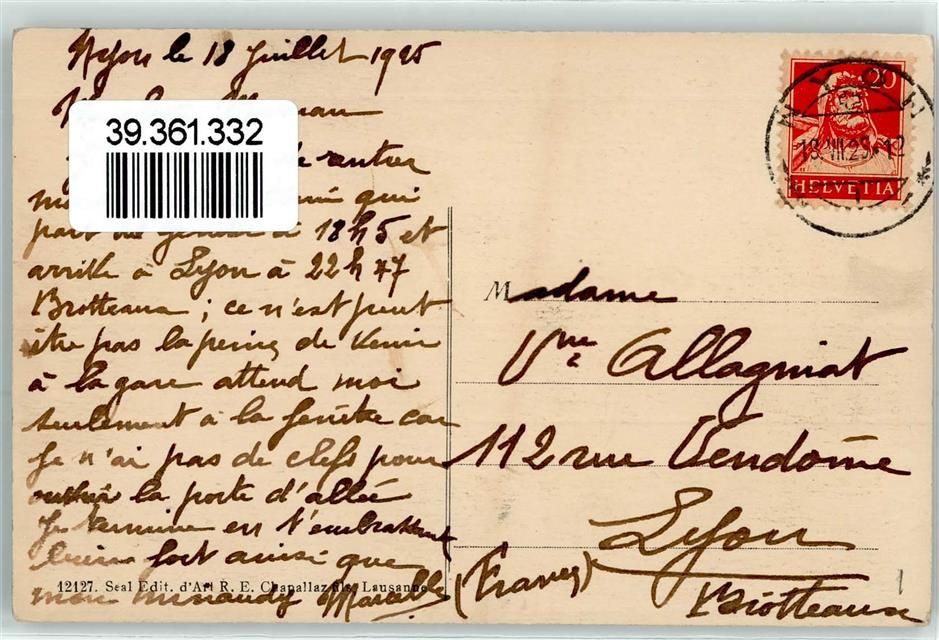 Nyon le 18 Juillet 1925
Maman
39.361.332
rentrer
qui
part de Genève à 18h5 et
arrive à Lyon à 22h47
Brotteaux ; ce n'est peut
être pas la peine de venir
à la gare attend moi
seulement à la fenêtre car
je n'ai pas de clefs pour
ouvrir la porte d'allée
Je termine en t'embrassant
bien fort ainsi que
mon Marcelle
12127. Seal Edit. d'Art R. E. Chapallaz fils, Lausanne
20
NYON
18.VII.25.12
HELVETIA
Madame
Vve Allagniat
112 rue Vendôme
Lyon
(France)
Brotteaux
1